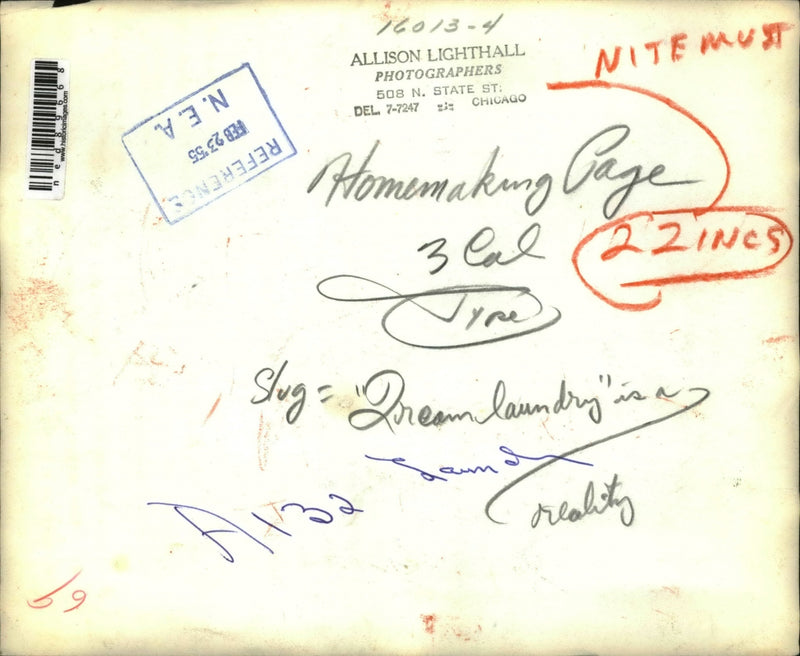 16013-4
ALLISON LIGHTHALL
PHOTOGRAPHERS
508 N. STATE ST.
DEL. 7-7247 CHICAGO
NITE MUST
www.historicimages.com
REFERENCE
FEB 23 '55
N. E. A.
Homemaking Page
3 Col
2 ZINCS
Type
Slug = "Dream laundry" is a
reality
A132
69